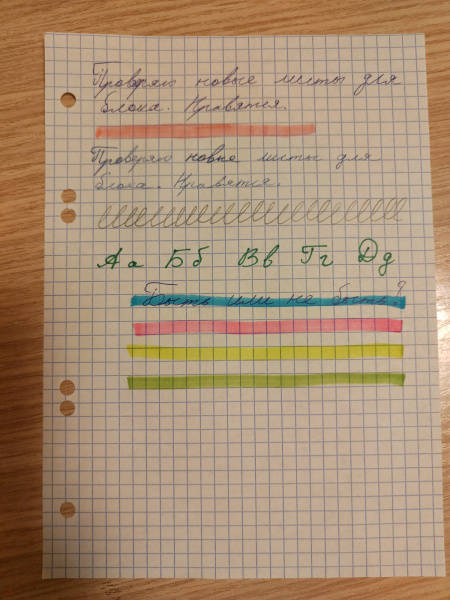 Проверяю новые листы для
блока. Нравятся.
Проверяю новые листы для
блока. Нравятся.
Аа Бб Вв Гг Дд
Быть или не быть?